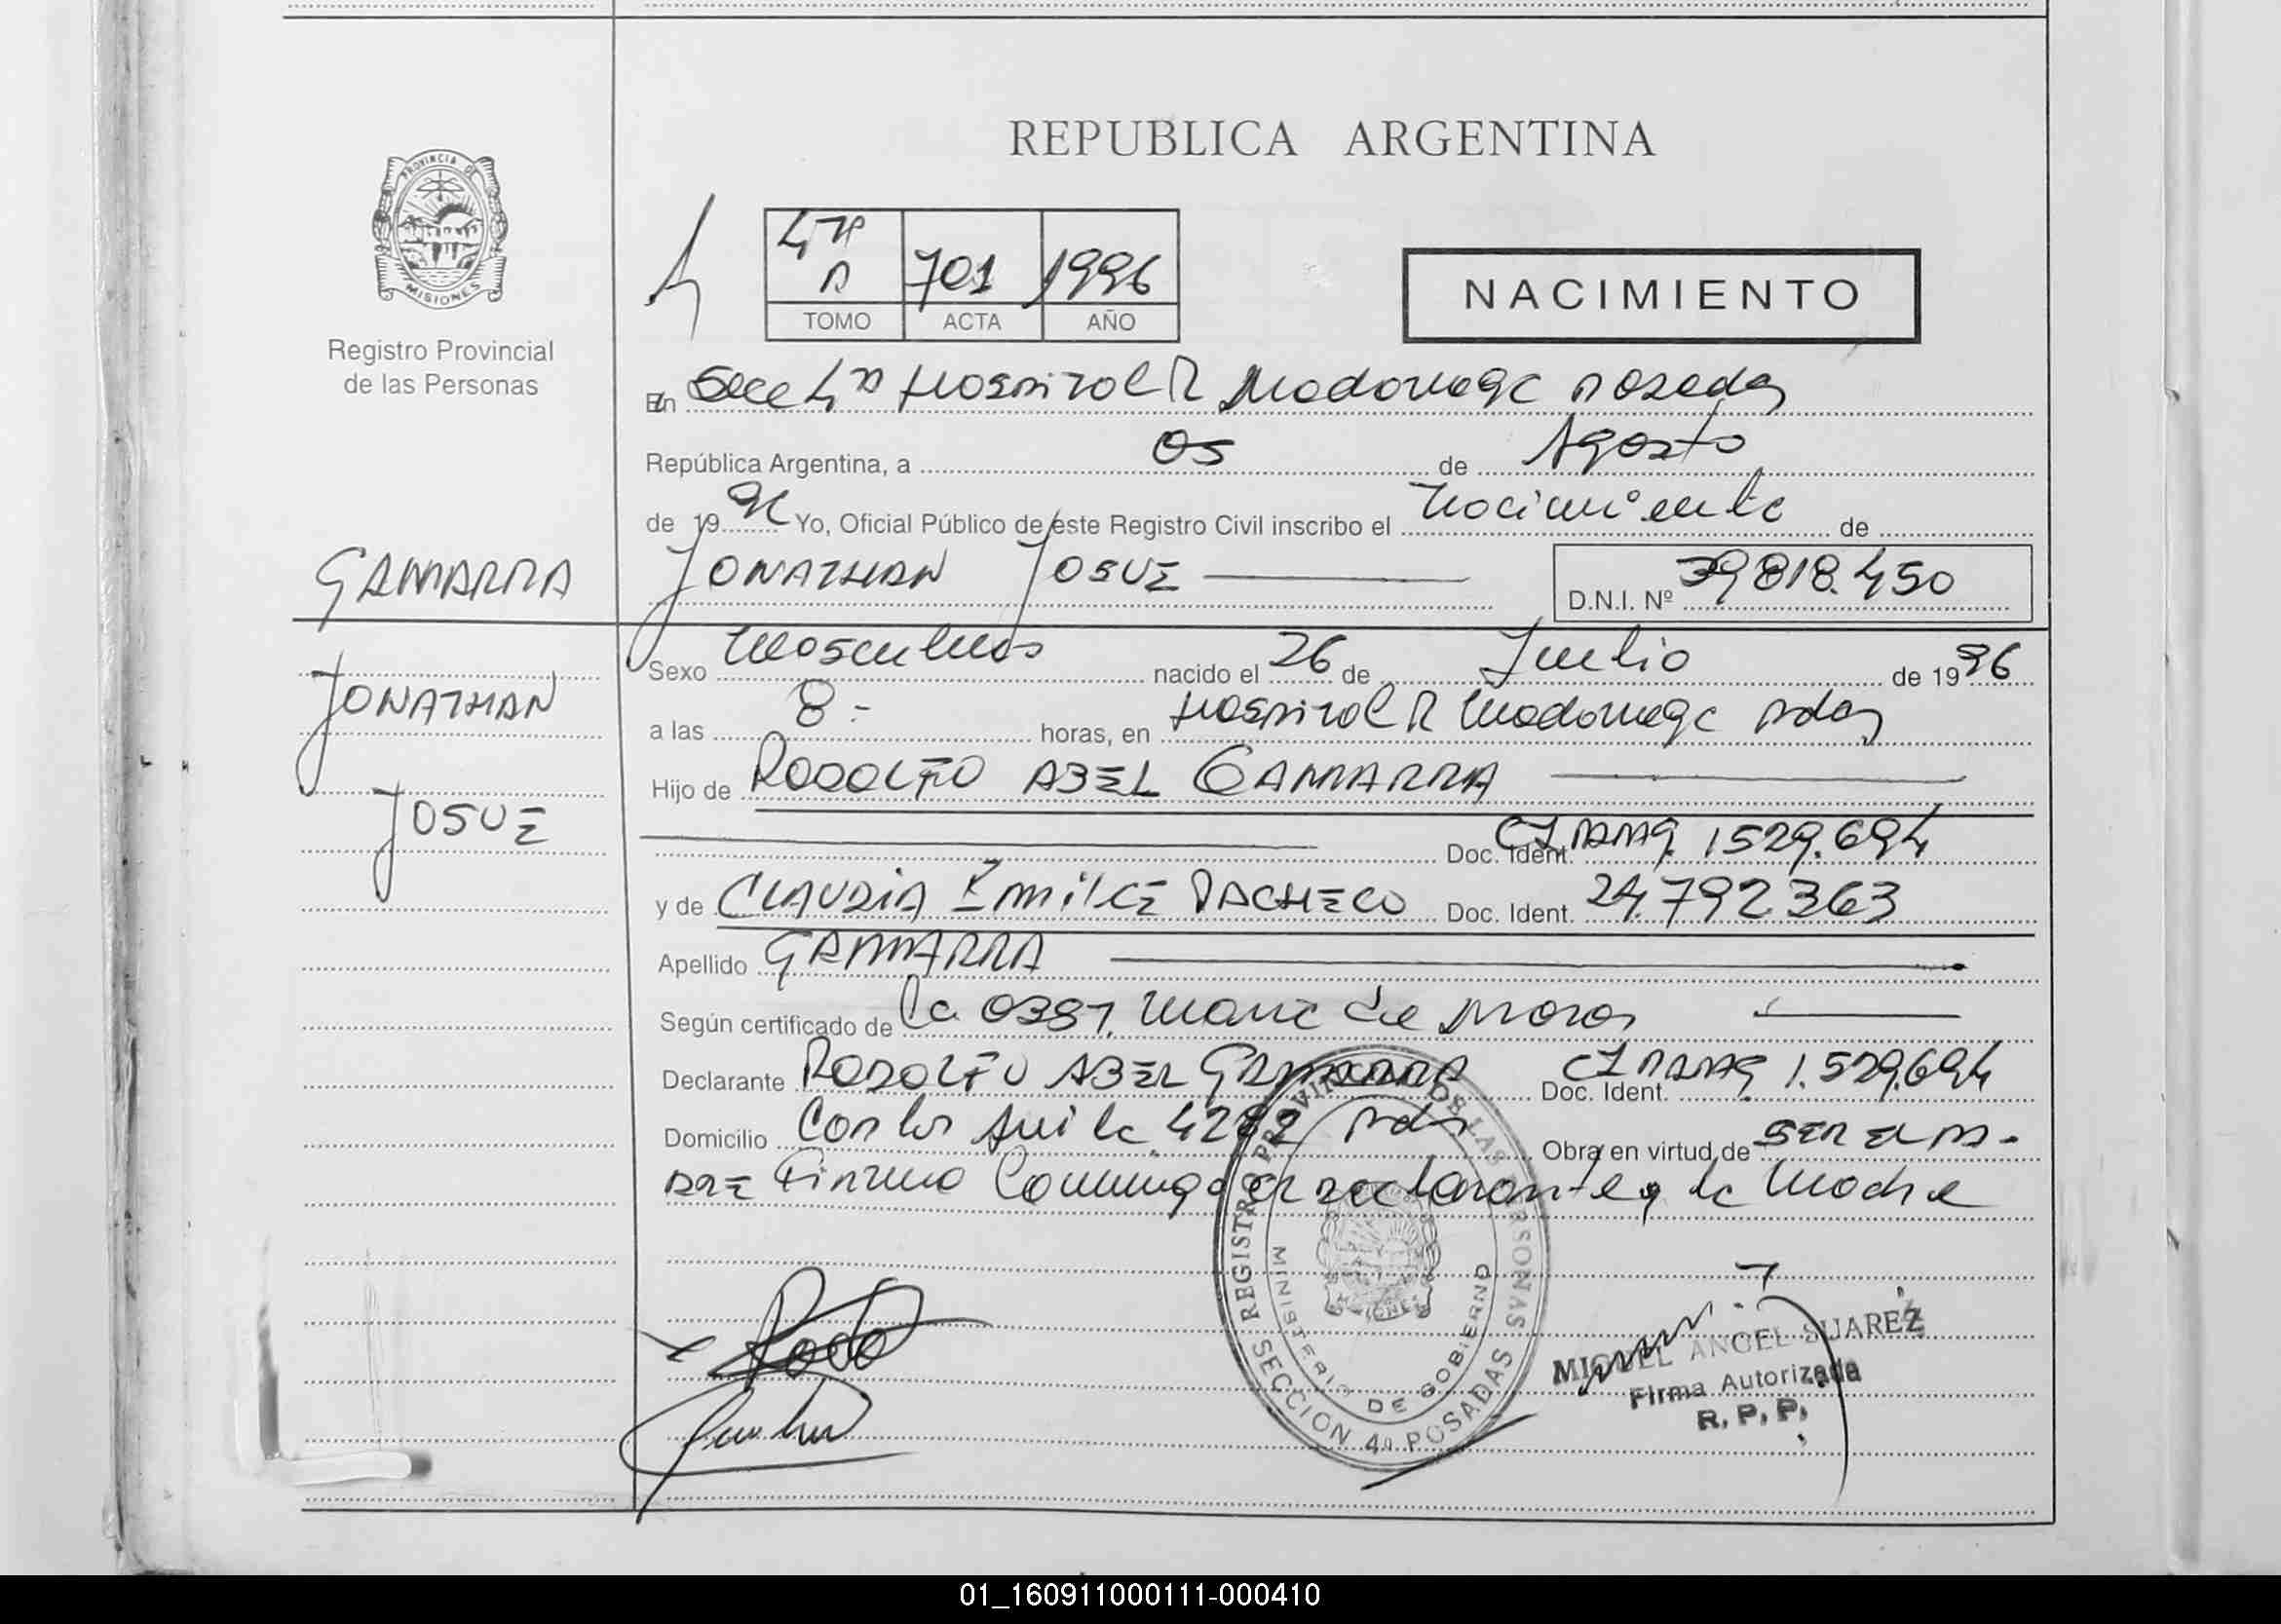 REPUBLICA ARGENTINA
PROVINCIA DE
MISIONES
Registro Provincial
de las Personas
701 1996
TOMO ACTA AÑO
NACIMIENTO
En Secc 4ª Hospital R Madariaga Posadas
República Argentina, a 05 de Agosto
de 1996 Yo, Oficial Público de este Registro Civil inscribo el Nacimiento de
GAMARRA
JONATHAN JOSUE
D.N.I. Nº 39818.450
JONATHAN
JOSUE
Sexo Masculino nacido el 26 de Julio de 1996
a las 8.- horas, en Hospital R Madariaga Pdas
Hijo de RODOLFO ABEL GAMARRA
Doc. Ident. 1529.694
y de CLAUDIA EMILCE PACHECO Doc. Ident. 24.792363
Apellido GAMARRA
Según certificado de la
Declarante RODOLFO ABEL GAMARRA Doc. Ident. 1.529.694
Domicilio Carlos 4282 Pdas Obra en virtud de SER EL PA-
DRE Firman Conmigo el declarante y la Madre
REGISTRO PROVINCIAL DE LAS PERSONAS
MINISTERIO DE GOBIERNO
SECCION 4ª POSADAS
MIGUEL ANGEL SUAREZ
Firma Autorizada
R. P. P.
01_160911000111-000410